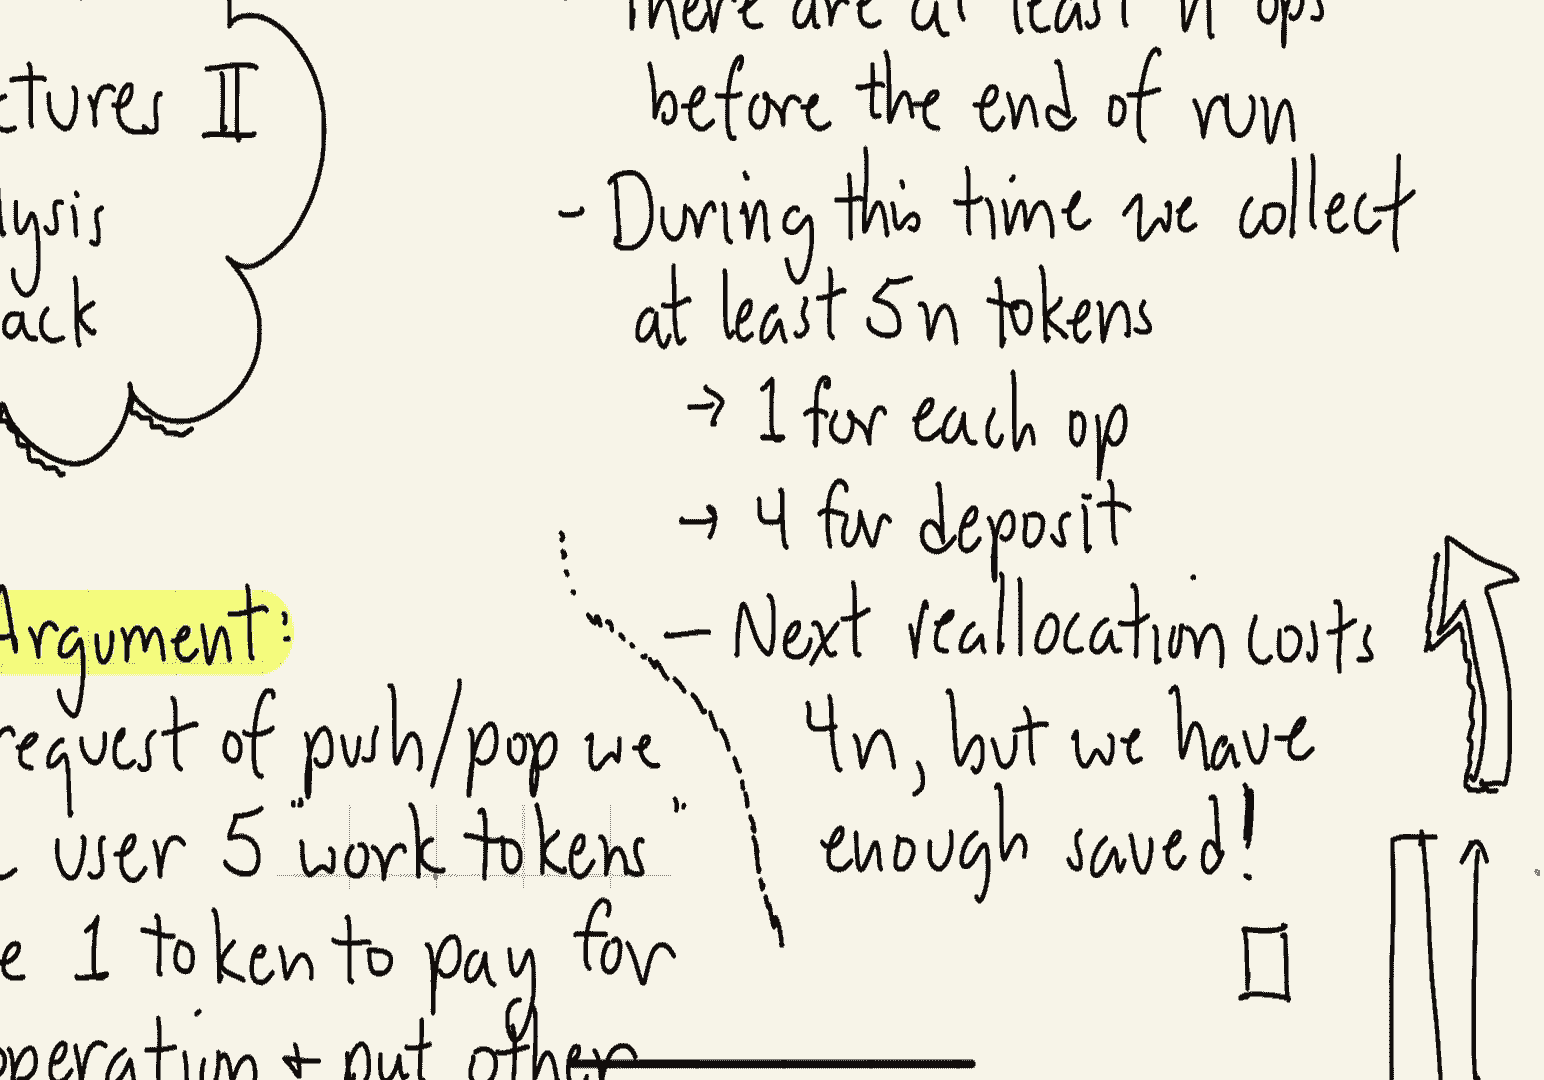 ctures II
lysis
ack
Argument:
request of push/pop we
user 5 "work tokens"
e 1 token to pay for
operation + put other
There are at least n ops
before the end of run
- During this time we collect
at least 5n tokens
→ 1 for each op
→ 4 for deposit
- Next reallocation costs
4n, but we have
enough saved!